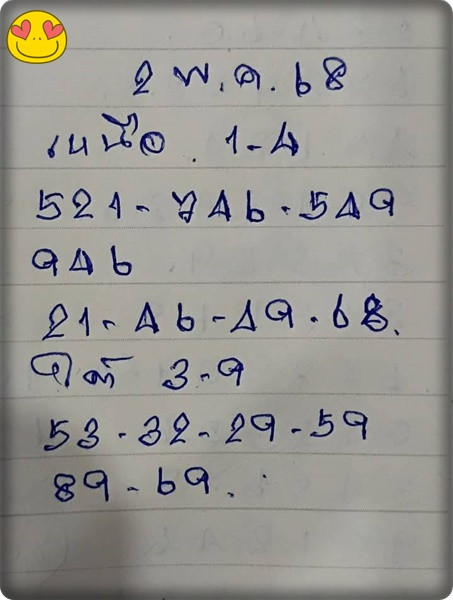 2 พ.ค. 68
เหนือ . 1-4
521 - 746 - 549
946
21 - 46 - 49 - 68.
ใต้ 3-9
53 - 32 - 29 - 59
89 - 69.